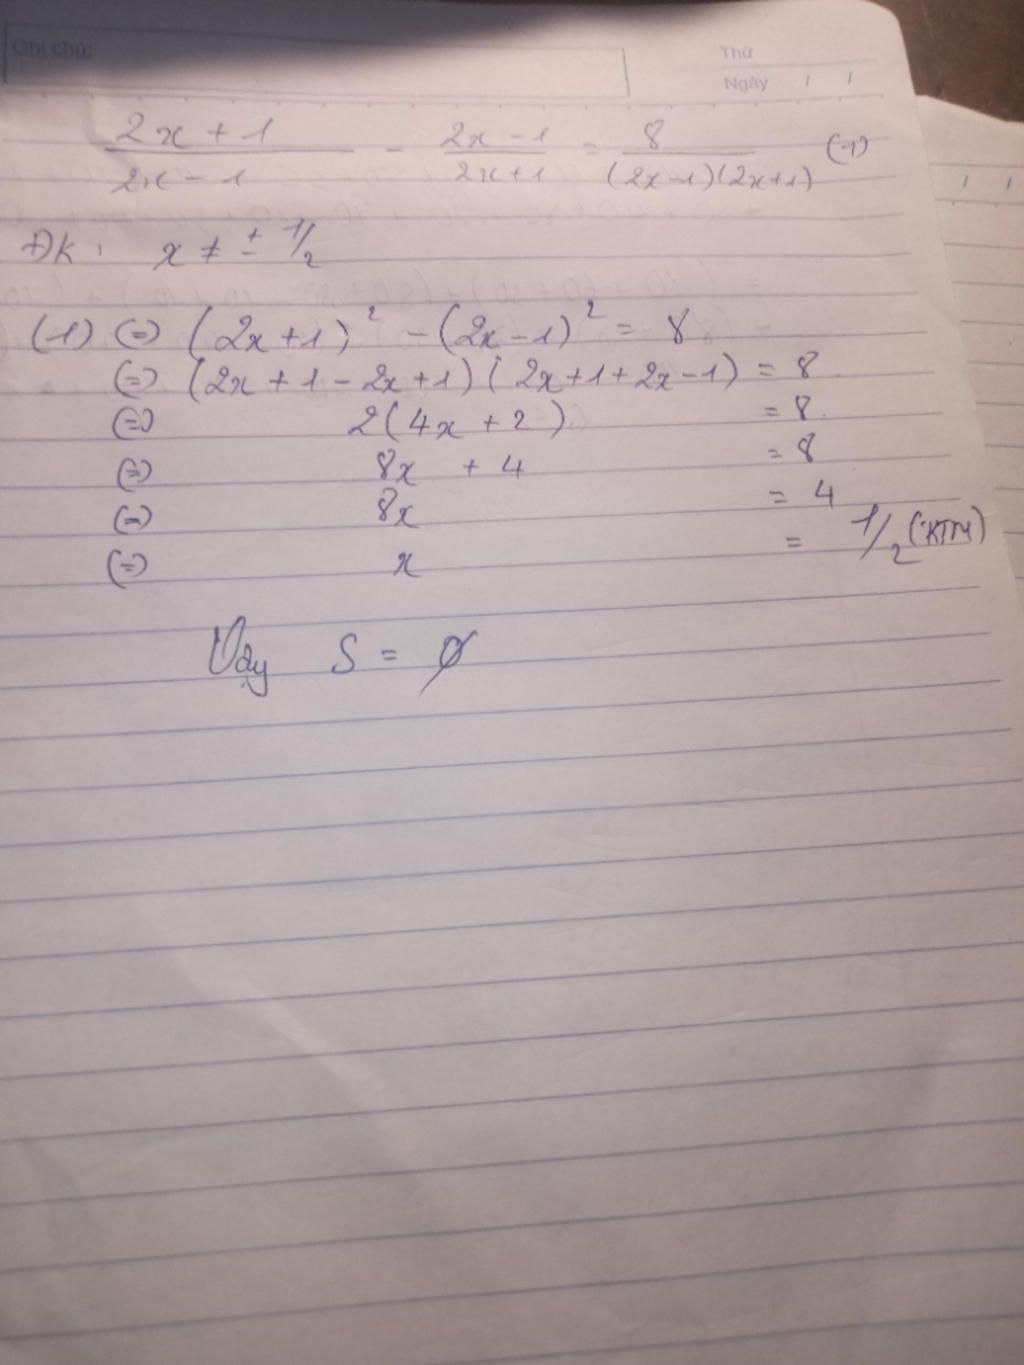 Ghi chú:
Thứ
Ngày / /
2x + 1 / 2x - 1 - 2x - 1 / 2x + 1 = 8 / (2x-1)(2x+1) (1)
ĐK: x ≠ ± 1/2
(1) (=) (2x+1)² - (2x-1)² = 8
(=) (2x + 1 - 2x + 1)(2x+1+2x-1) = 8
(=) 2(4x + 2) = 8
(=) 8x + 4 = 8
(=) 8x = 4
(=) x = 1/2 (KTM)
Vậy S = ∅